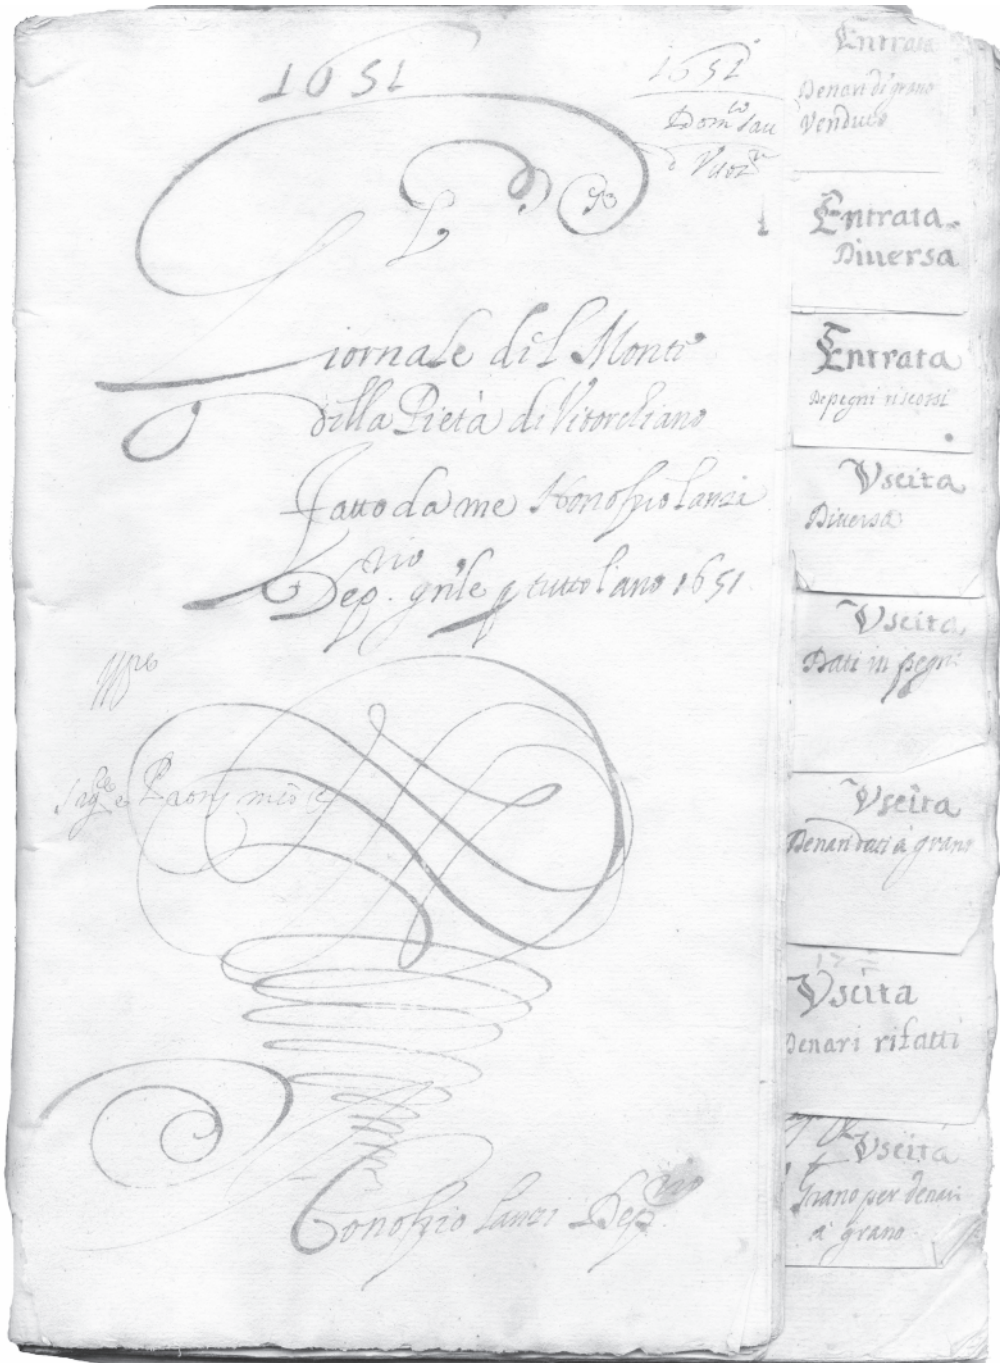 1651
1651
Dom.co
Giornale del Monte
della Pietà di Vitorchiano
Fatto da me Honofrio Lanzi
Dep.rio gn'le p tutto l'ano 1651
Honofrio Lanzi Dep.rio
Entrata
Denari di grano
Venduto
Entrata
Diuersa
Entrata
De pegni riscorsi
Vscita
Diuersa
Vscita
Dati in pegni
Vscita
Denari dati à grano
Vscita
Denari rifatti
Vscita
Grano per denari
à grano